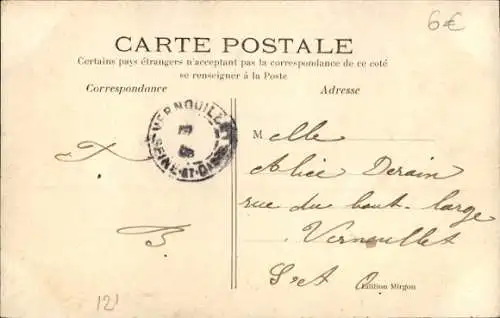 6€
CARTE POSTALE
Certains pays étrangers n'acceptant pas la correspondance de ce coté
se renseigner à la Poste
Correspondance
Adresse
VERNOUILLET
SEINE-ET-OISE
Melle
Alice Derain
rue du haut-large
Vernouillet
S et O
Edition Mirgon
121